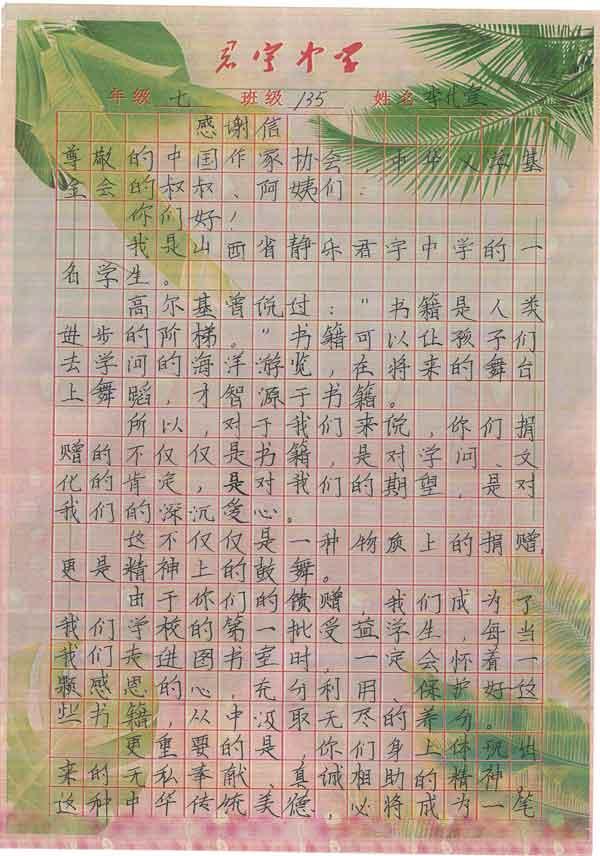 君宇中学
年级 七 班级 135 姓名 李
感谢信
尊敬的中国作家协会,中华文学基
金会的叔叔、阿姨们:
你们好!
我是山西省静乐君宇中学的一
名学生。
高尔基曾说过:“书籍是人类
进步的阶梯。”书籍可以让孩子们
去学问的海洋游览,在将来的舞台
上舞蹈,才智源于书籍。
所以,对于我们来说,你们捐
赠的不仅仅是书籍,是对学问、文
化的肯定,是对我们的期望,是对
我们的深沉爱心。
这不仅仅是一种物质上的捐赠,
更是精神上的鼓舞。
由于你们的馈赠,我们成为了
我们学校的第一批受益学生,每当
我们走进图书室时,一定会怀着一
颗感恩的心,充分利用、保护好这
些书籍,从中汲取无尽的养分。
更重要的是,你们身上体现出
来的无私奉献,真诚相助的精神,
这种中华传统美德,必将成为一笔